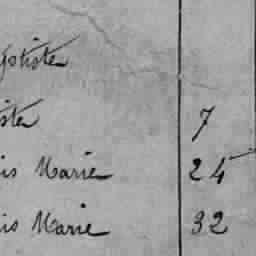 ptiste
iste 7
is Marie 24
is Marie 32